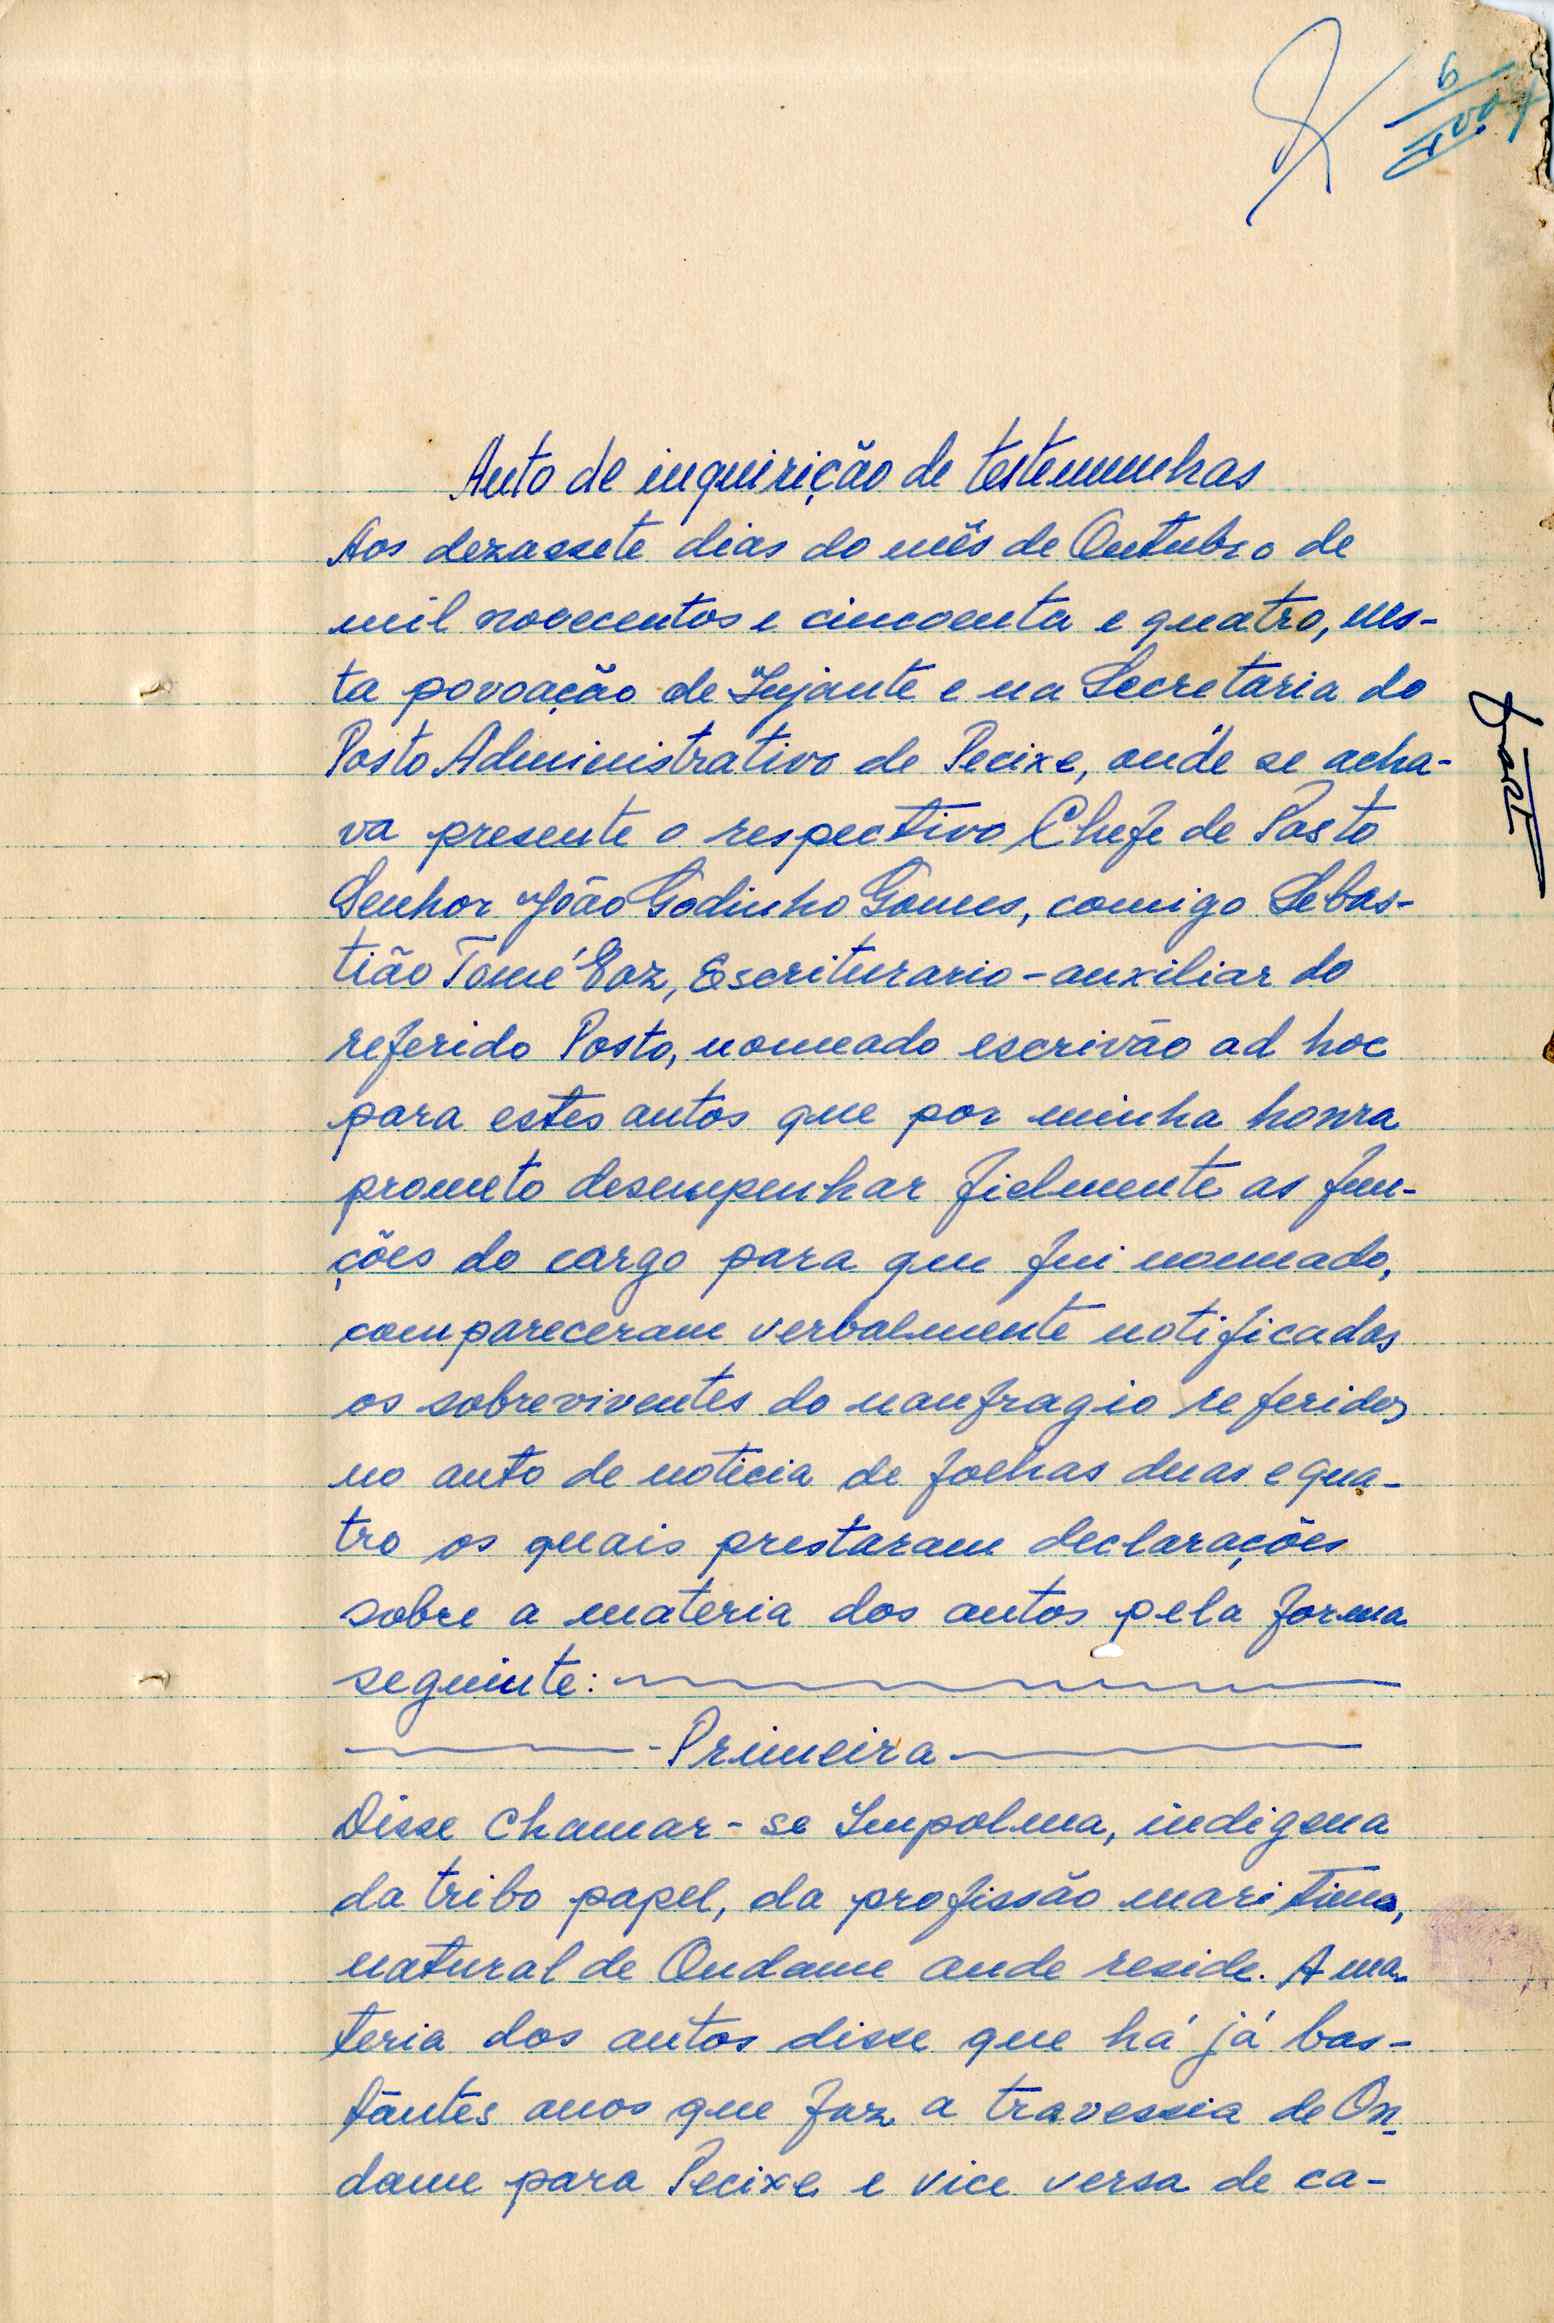 6
Auto de inquirição de testemunhas
Aos dezassete dias do mês de Outubro de
mil novecentos e cincoenta e quatro, nes-
ta povoação de Injante e na Secretaria do
Posto Administrativo de Pecixe, onde se acha-
va presente o respectivo Chefe de Posto
Senhor João Godinho Gomes, comigo Sebas-
tião Tomé Vaz, Escriturario-auxiliar do
referido Posto, nomeado escrivão ad hoc
para estes autos que por minha honra
prometo desempenhar fielmente as fun-
ções do cargo para que fui nomeado,
compareceram verbalmente notificados
os sobreviventes do naufragio referidos
no auto de noticia de folhas duas e qua-
tro os quais prestaram declarações
sobre a materia dos autos pela forma
seguinte:
-Primeira
Disse chamar-se Impolma, indigena
da tribo papel, da profissão maritima,
natural de Ondame onde reside. A ma-
teria dos autos disse que há já bas-
tantes anos que faz a travessia de On-
dame para Pecixe e vice versa de ca-